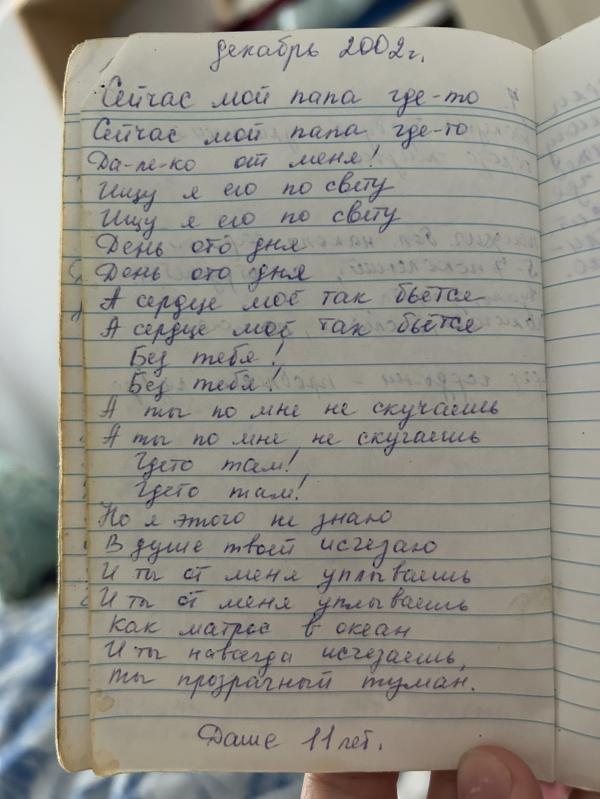 декабрь 2002г.
Сейчас мой папа где-то
Сейчас мой папа где-то
Да-ле-ко от меня!
Ищу я его по свету
Ищу я его по свету
День ото дня
День ото дня
А сердце моё так бьётся
А сердце моё так бьётся
Без тебя!
Без тебя!
А ты по мне не скучаешь
А ты по мне не скучаешь
Гдето там!
Гдето там!
Но я этого не знаю
В душе твоей исчезаю
И ты от меня уплываешь
И ты от меня уплываешь
Как матрос в океан
И ты навсегда исчезаешь,
Ты прозрачный туман.
Даше 11 лет.